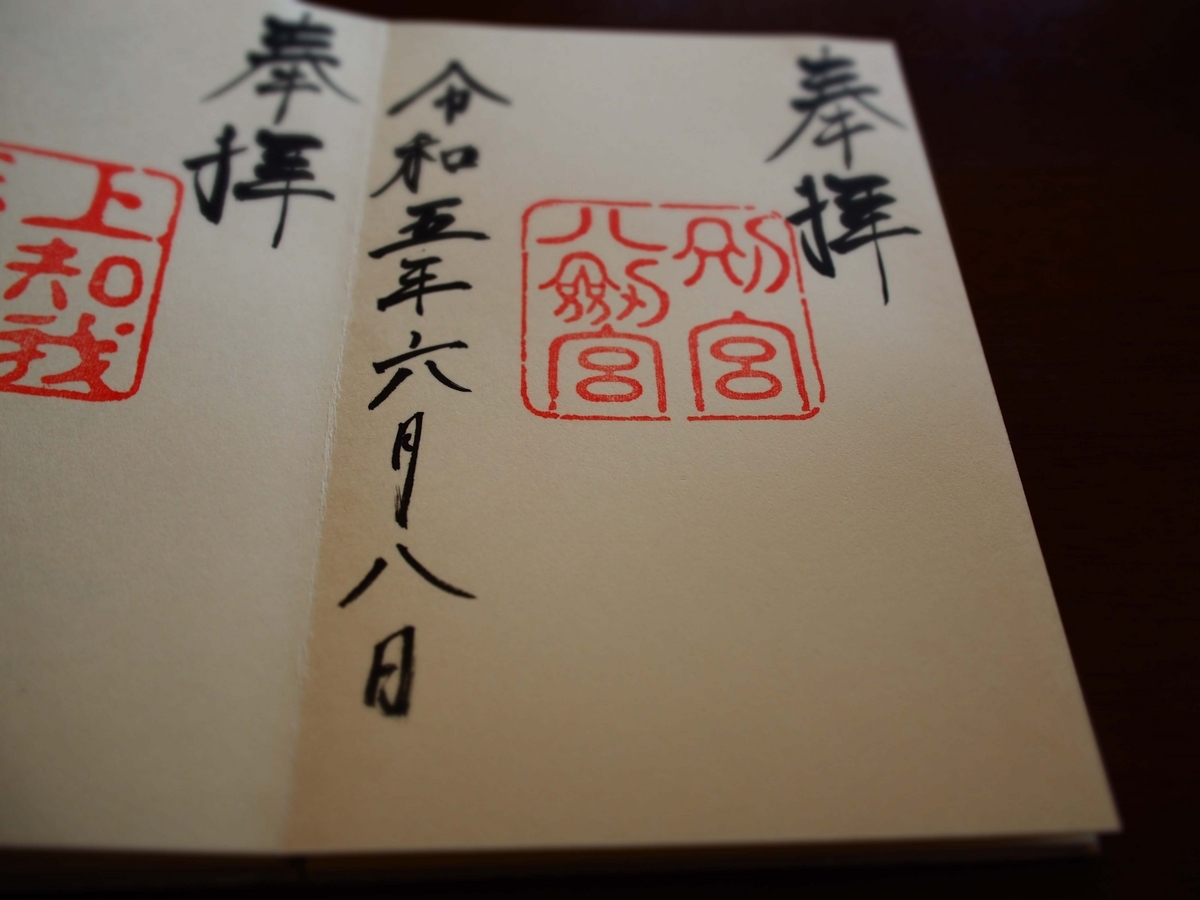 奉拝
別宮
八剱宮
令和五年六月八日
奉拝
上知我